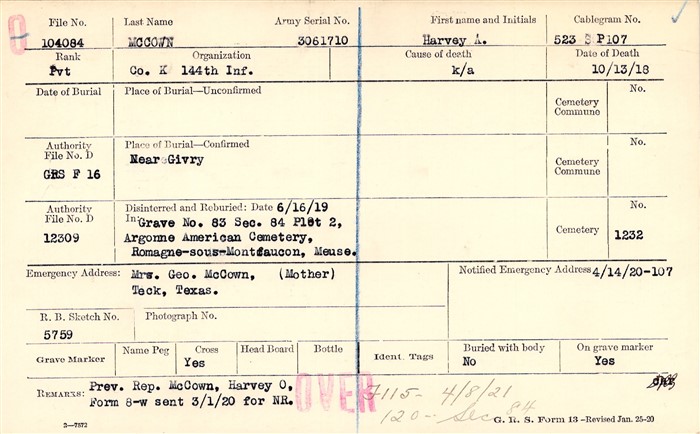 File No. Last Name Army Serial No. First name and Initials Cablegram No.
104084 MCCOWN 3061710 Harvey A. 523 S P107
Rank Organization Cause of death Date of Death
Pvt Co. K 144th Inf. k/a 10/13/18
Date of Burial Place of Burial—Unconfirmed Cemetery Commune No.
Authority File No. D Place of Burial—Confirmed Cemetery Commune No.
GRS F 16 Near Givry
Authority File No. D Disinterred and Reburied: Date 6/16/19 No.
12309 In: Grave No. 83 Sec. 84 Plot 2, Cemetery 1232
Argonne American Cemetery,
Romagne-sous-Montfaucon, Meuse.
Emergency Address: Mrs. Geo. McCown, (Mother) Notified Emergency Address 4/14/20-107
Teck, Texas.
R. B. Sketch No. Photograph No.
5759
Grave Marker Name Peg Cross Head Board Bottle Ident. Tags Buried with body On grave marker
Yes No Yes
REMARKS: Prev. Rep. McCown, Harvey O,
Form 8-w sent 3/1/20 for NR.
OVER
F115- 4/8/21
120-- Sec 84
2—7572 G. R. S. Form 13 -Revised Jan. 25-20